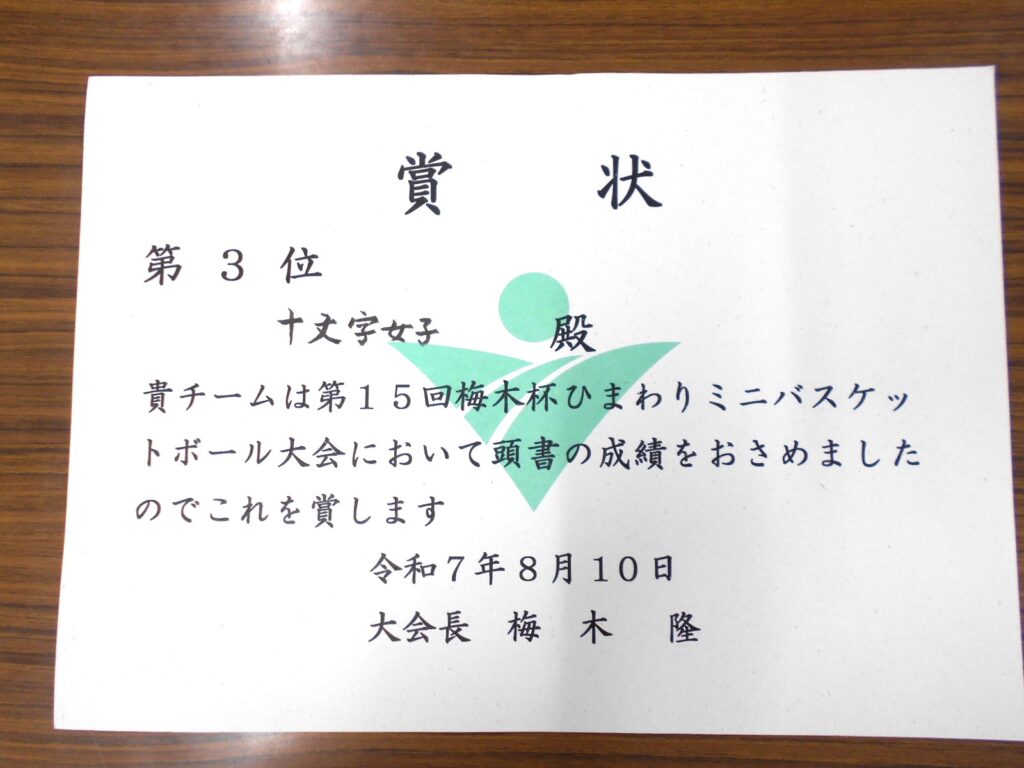 賞 状
第 3 位
十文字女子 殿
貴チームは第15回梅木杯ひまわりミニバスケッ
トボール大会において頭書の成績をおさめました
のでこれを賞します
令和7年8月10日
大会長 梅 木 隆